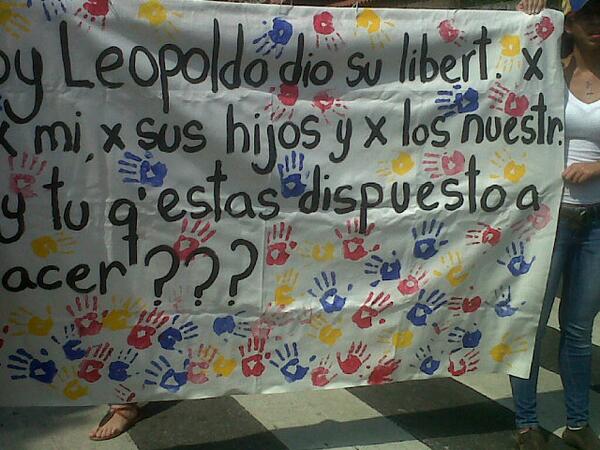 oy Leopoldo dio su libert. x
x mi, x sus hijos y x los nuestr.
y tu q' estas dispuesto a
acer???